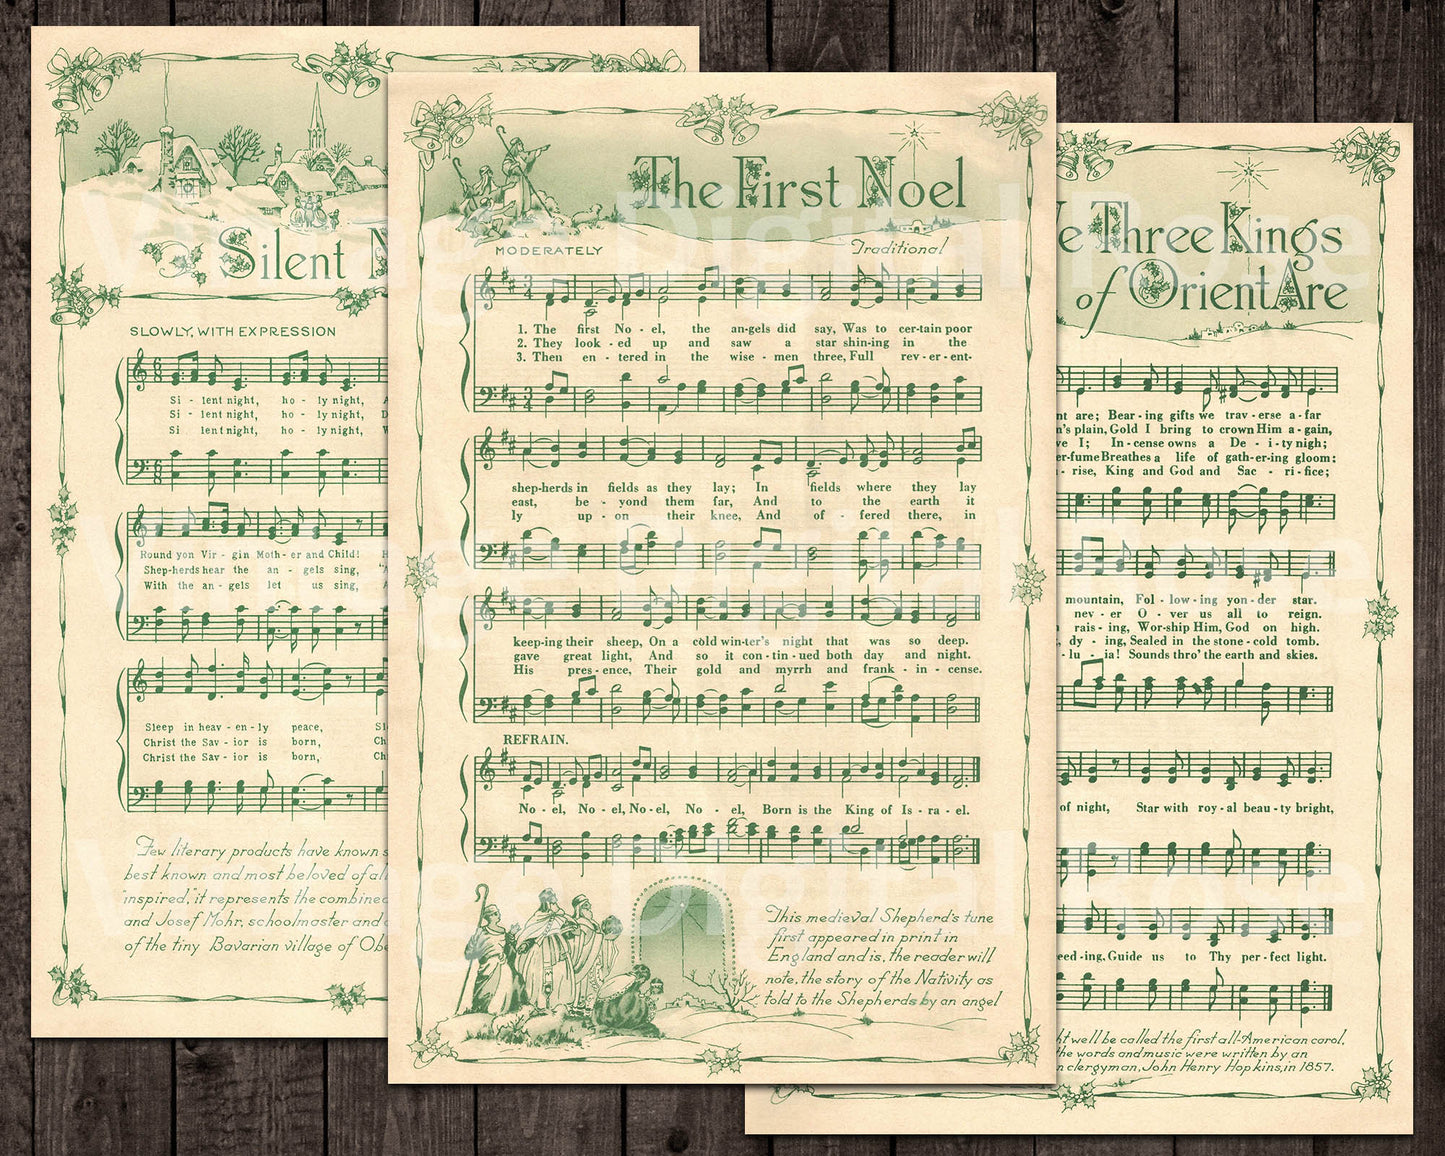 Silent N
SLOWLY, WITH EXPRESSION
Si - lent night, ho - ly night, A
Si - lent night, ho - ly night, D
Si lent night, ho - ly night, W
Round yon Vir - gin Moth - er and Child! H
Shep-herds hear the an - gels sing, "A
With the an - gels let us sing, A
Sleep in heav - en - ly peace, Sl
Christ the Sav - ior is born, Ch
Christ the Sav - ior is born, Ch
Few literary products have known s
best known and most beloved of all
inspired, it represents the combined
and Josef Mohr, schoolmaster and
of the tiny Bavarian village of Obe
The First Noel
MODERATELY Traditional
1. The first No - el, the an-gels did say, Was to cer-tain poor
2. They look - ed up and saw a star shin-ing in the
3. Then en - tered in the wise - men three, Full rev - er - ent-
shep-herds in fields as they lay; In fields where they lay
east, be - yond them far, And to the earth it
ly up - on their knee, And of - fered there, in
keep-ing their sheep, On a cold win-ter's night that was so deep.
gave great light, And so it con - tin - ued both day and night.
His pres - ence, Their gold and myrrh and frank - in - cense.
REFRAIN.
No - el, No - el, No - el, No - el, Born is the King of Is - ra - el.
This medieval Shepherd's tune
first appeared in print in
England and is, the reader will
note, the story of the Nativity as
told to the Shepherds by an angel
e Three Kings
of Orient Are
nt are; Bear - ing gifts we trav - erse a - far
n's plain, Gold I bring to crown Him a - gain,
ve I; In - cense owns a De - i - ty nigh;
er-fume Breathes a life of gath - er - ing gloom;
- rise, King and God and Sac - ri - fice;
mountain, Fol - low - ing yon - der star.
nev - er O - ver us all to reign.
rais - ing, Wor-ship Him, God on high.
dy - ing, Sealed in the stone - cold tomb.
- lu - ia! Sounds thro' the earth and skies.
of night, Star with roy - al beau - ty bright,
eed - ing, Guide us to Thy per - fect light.
ht well be called the first all-American carol.
the words and music were written by an
n clergyman, John Henry Hopkins, in 1857.
Vintage Digital Rose
Vintage Digital Rose
Vintage Digital Rose